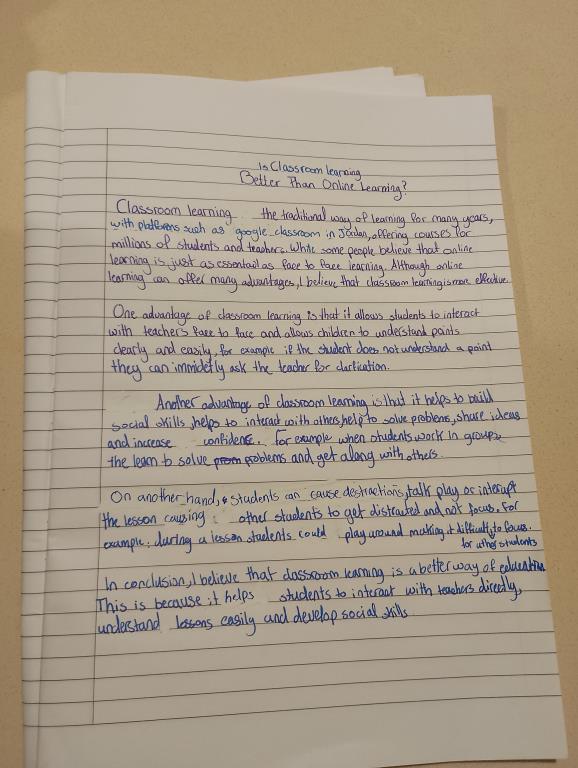 Is Classroom learning
Better Than Online Learning?
Classroom learning the traditional way of learning for many years,
with platforms such as google classroom in Jordan, offering courses for
millions of students and teachers. While some people believe that online
learning is just as essentail as face to face learning. Although online
learning can offer many advantages, I believe that classroom learning is more effective.
One advantage of classroom learning is that it allows students to interact
with teachers face to face and allows children to understand points
clearly and easily, for example if the student does not understand a point
they can immidetly ask the teacher for clarfication.
Another advantage of classroom learning is that it helps to build
social skills, helps to interact with others, help to solve problems, share ideas
and increase confidence. For example when students work in groups
the learn to solve problems and get along with others.
On another hand, students can cause destractions, talk play or interupt
the lesson causing other students to get distracted and not focus. For
example: during a lesson students could play around making it difficult to focus.
for other students
In conclusion, I believe that classroom learning is a better way of education
This is because it helps students to interact with teachers directly,
understand lessons easily and develop social skills